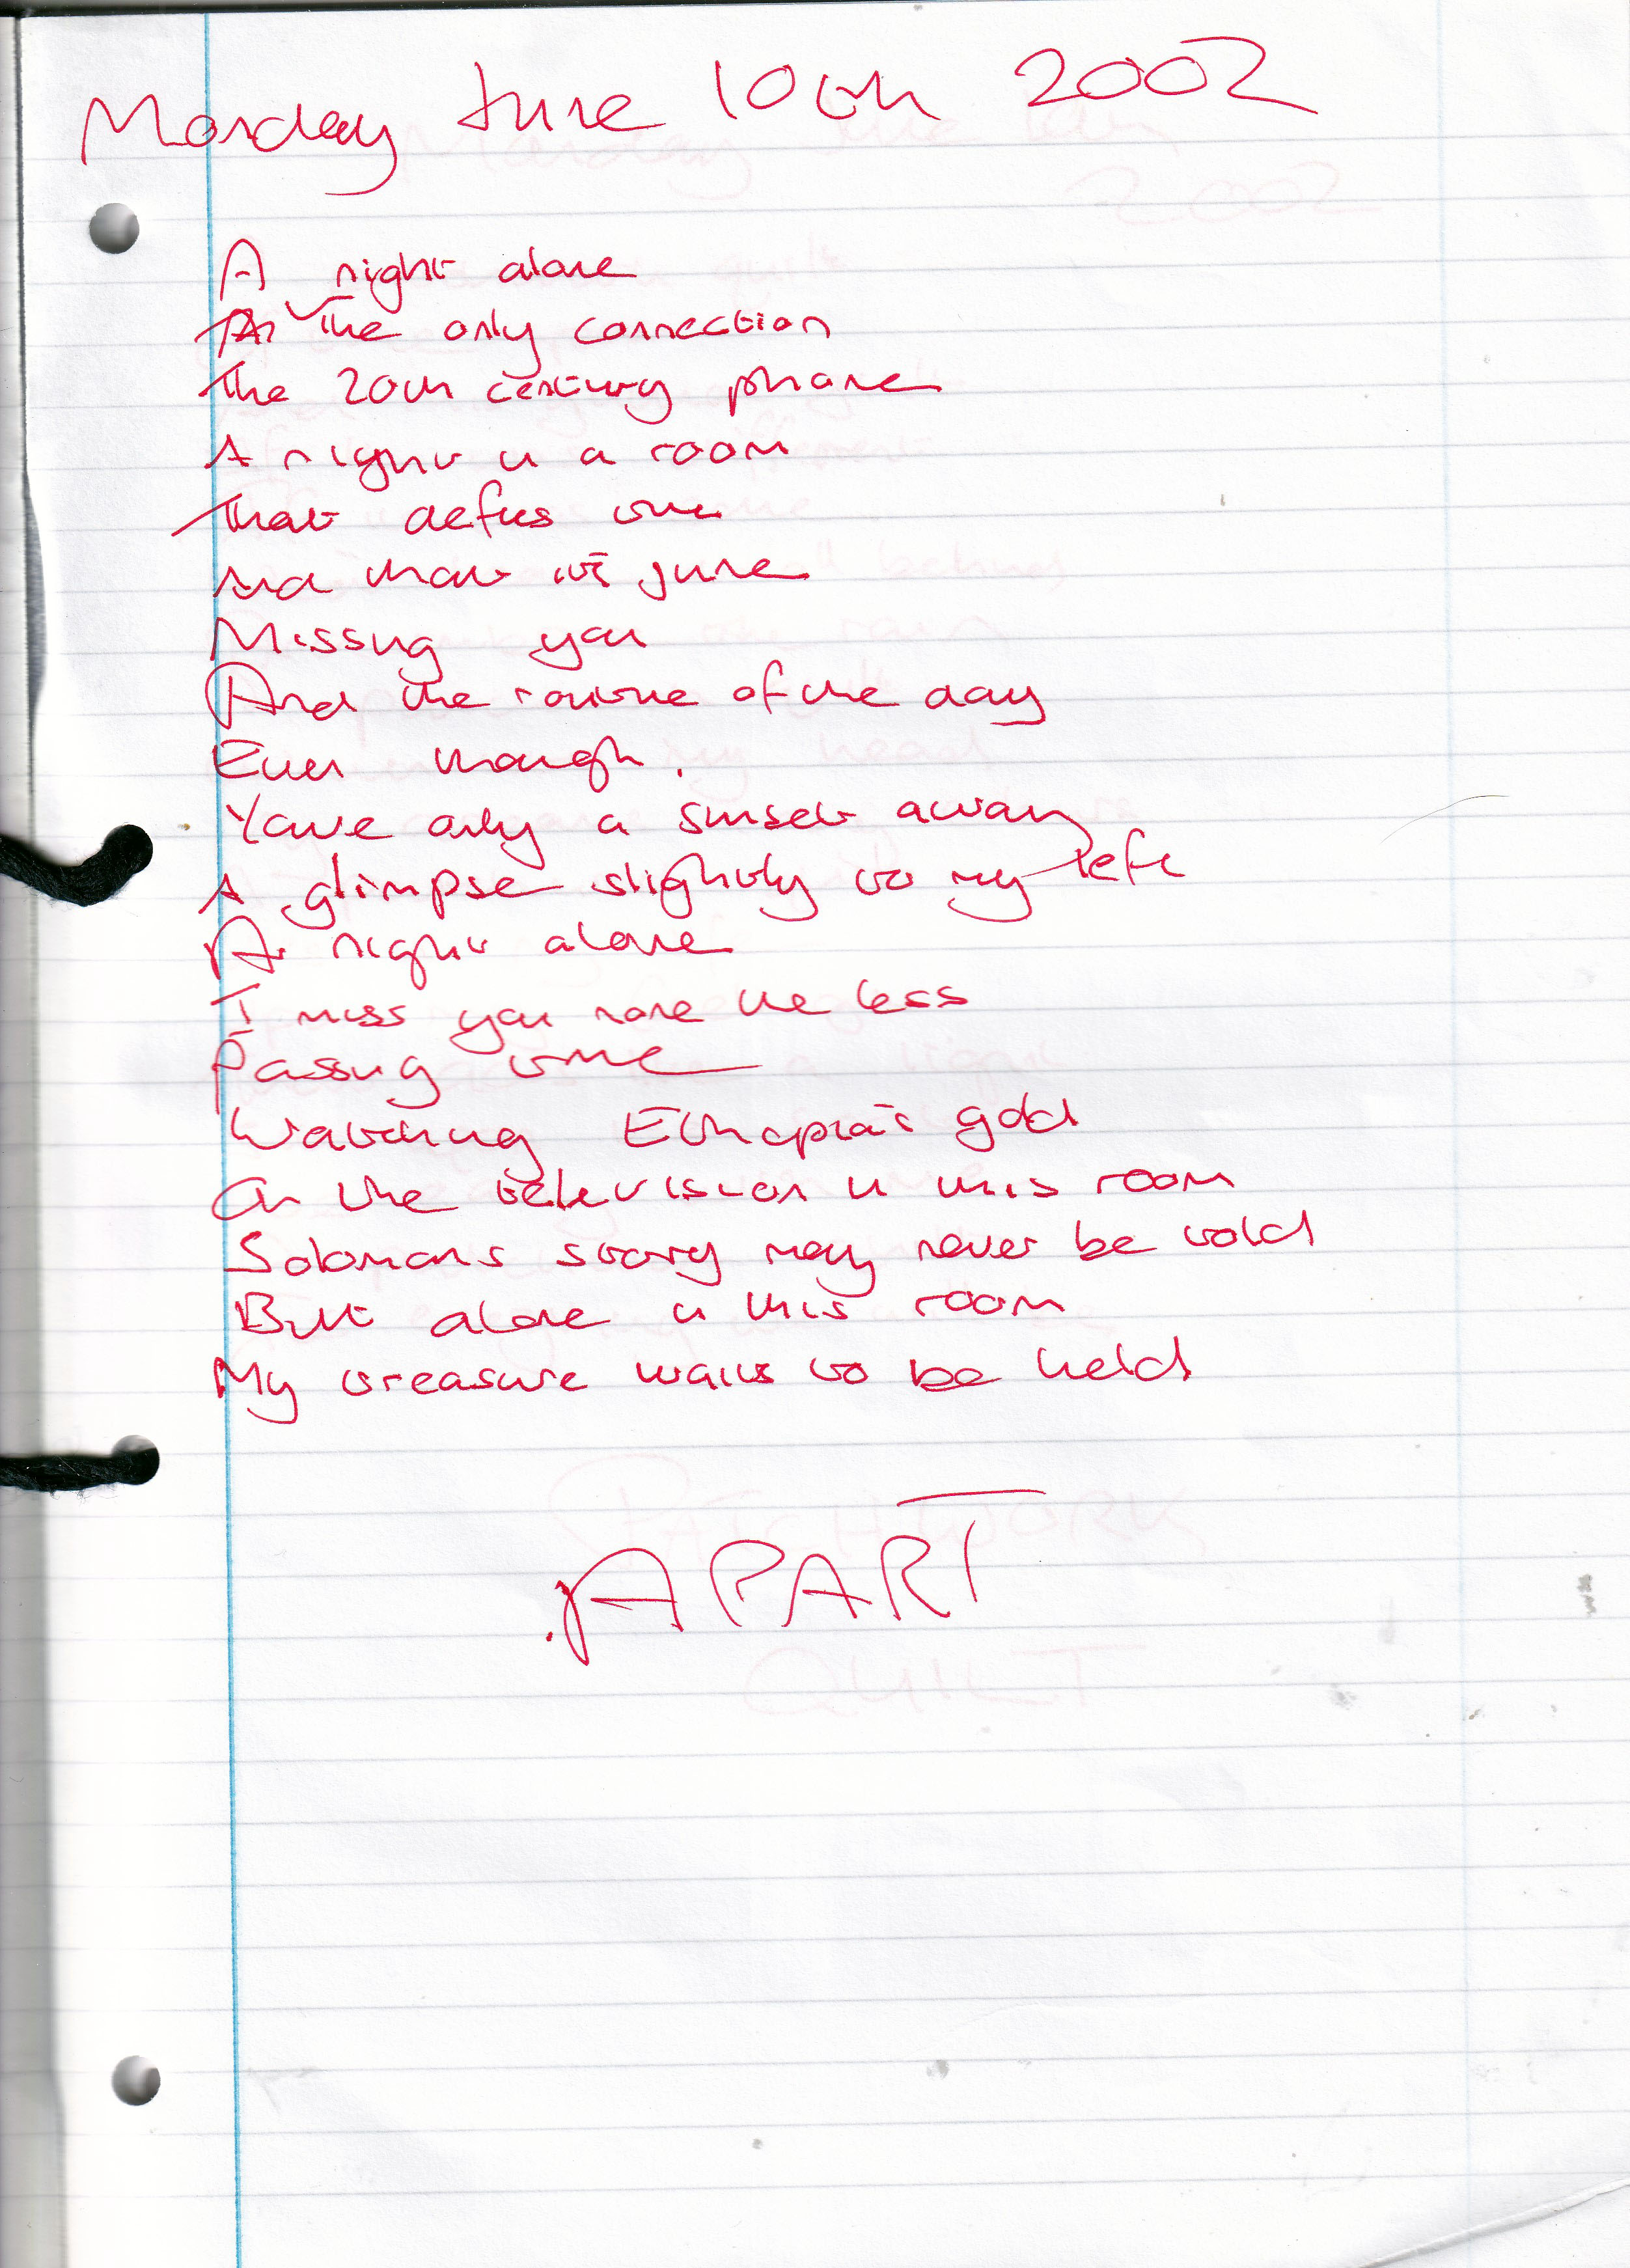 Monday June 10th 2002
A night alone
The only connection
The 20th century phone
A night in a room
That defies time
And that it's june
Missing you
And the routine of the day
Even though
You're only a sunset away
A glimpse slightly to my left
A night alone
I miss you none the less
Passing time
Watching Ethiopia's gold
On the television in this room
Solomans story may never be told
But alone in this room
My treasure waits to be held
APART